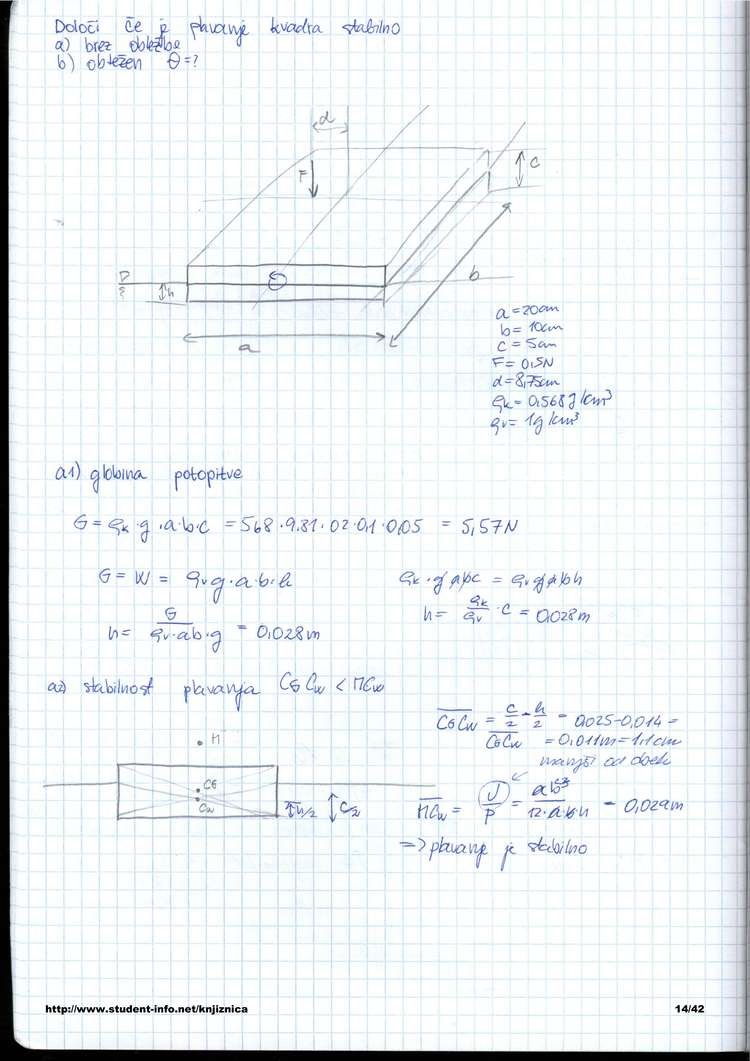 Določi če je plavanje kvadra stabilno
a) brez obtežbe
b) obtežen Θ=?
d
F
c
h
b
a
a = 20cm
b = 10cm
c = 5cm
F = 0,5N
d = 8,75cm
ρk = 0,568 g/cm³
ρv = 1g/cm³
a1) globina potopitve
G = ρk · g · a·b·c = 568 · 9,81 · 02·0,1·0,05 = 5,57N
G = W = ρv g · a·b·h
ρk · g abc = ρv g abh
h = G / ρv·ab·g = 0,028m
h = ρk / ρv · c = 0,028m
a2) stabilnost plavanja CG CW < MCW
CG CW = c/2 - h/2 = 0,025-0,014 =
CG CW = 0,011m = 1,1cm
M
CG
CW
h/2
c/2
MCW = J / P = ab³ / 12·a·b·h = 0,029m
=> plavanje je stabilno
http://www.student-info.net/knjiznica
14/42